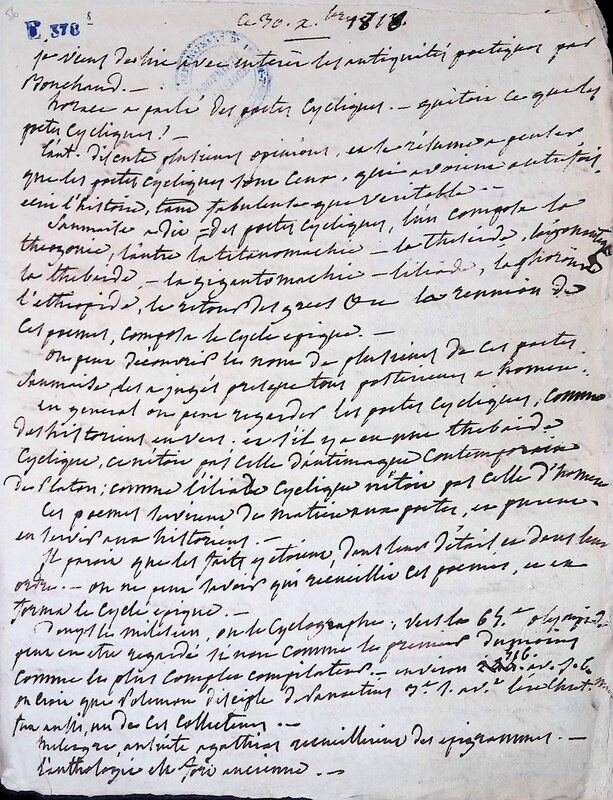 E 378 8
ce 30. xbre 1818.
je viens de lire avec intérêt les antiquités poétiques par
Bouchaud. —
horace a parlé des poetes cycliques. — qu'etoit ce que les
poetes cycliques? —
l'aut. discute plusieurs opinions, et se résume a penser
que les poetes cycliques sont ceux, qui avoient autrefois
ecrit l'histoire, tant fabuleuse que veritable. —
Saumaise a dit = des poetes cycliques, l'un composa la
theogonie, l'autre la titanomachie — la theseide,
la thebaide, — la gigantomachie — l'iliade, la
l'ethiopide, le retour des grecs &c la reunion de
ces poemes, composa le cycle epique. —
on peut découvrir les noms de plusieurs de ces poetes
Saumaise, les a jugés presque tous posterieurs a homere.
en general on peut regarder les poetes cycliques, comme
des historiens en vers. et s'il y a eu une thebaide
cyclique, ce n'etoit pas celle d'antimaque contemporain
de Platon; comme l'iliade cyclique n'etoit pas celle d'homere
Ces poemes servirent de matiere aux poetes, et purent
en servir aux historiens. —
Il paroit que les faits y etoient, dans leur détail et dans leur
ordre. — on ne peut savoir qui recueillit ces poemes, et en
forma le cycle epique. —
Denys le milesien, ou le cyclographe, vers la 65.e olympiade
peut en etre regardé si non comme le premier du moins
comme le plus complet compilateur — environ 516. av. J. C.
on croit que Polemon disciple de Panaetius
fut aussi, un de ces collecteurs. —
méleagre, ensuite agathias recueillirent des epigrammes. —
l'anthologie est fort ancienne. —